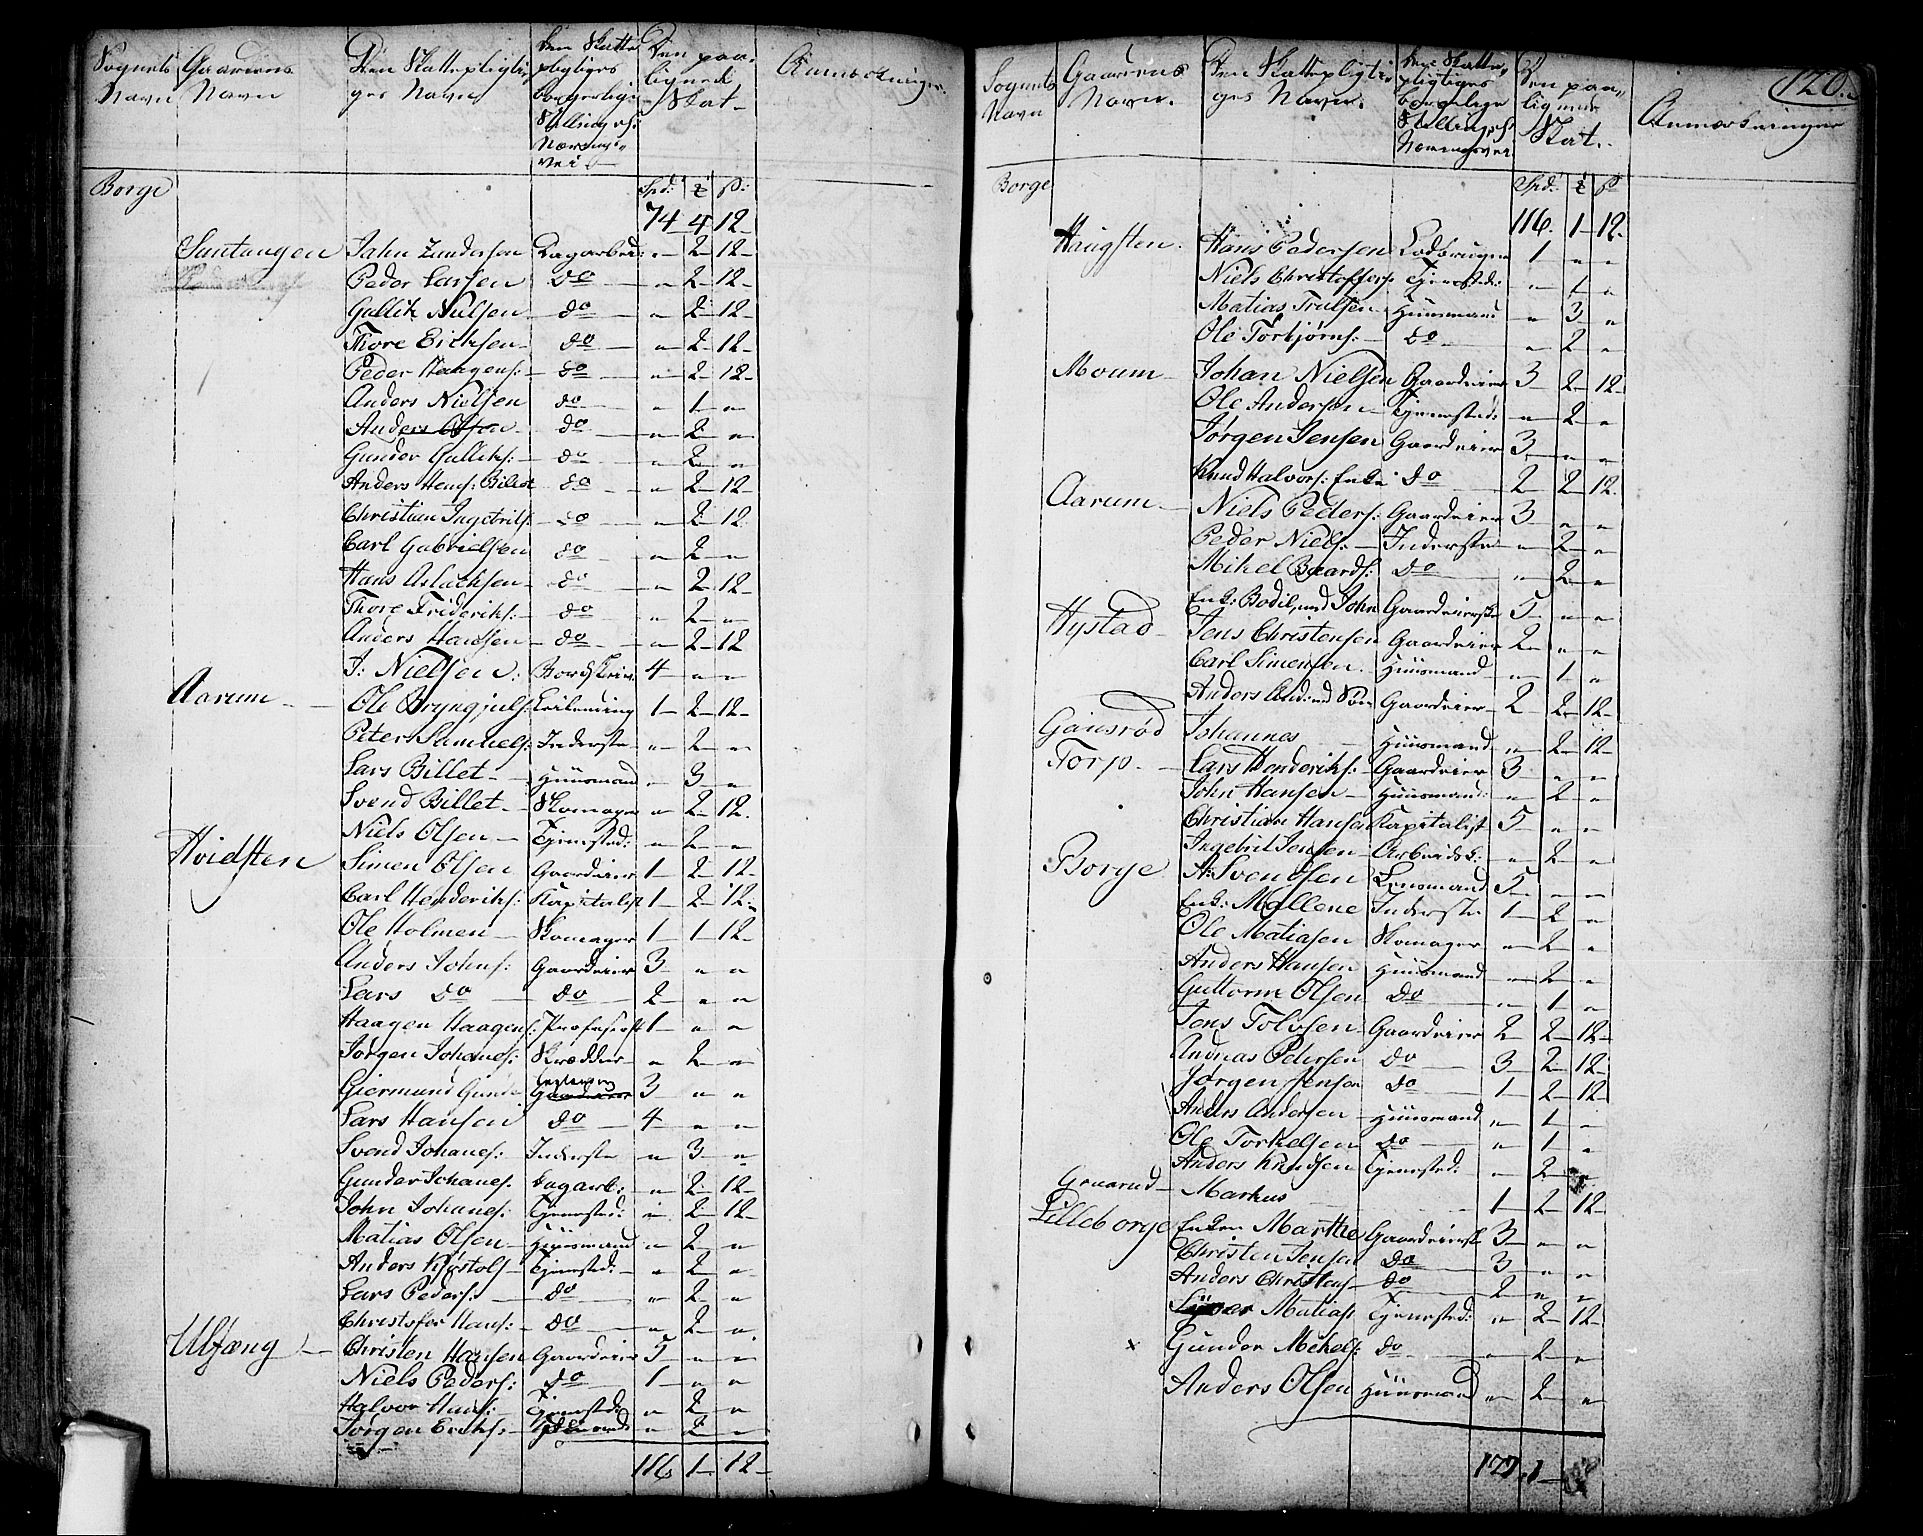 Sognets Navn
Gaardens Navn
Den Skattepligtiges Navn
Den Skattepligtiges borgerlige Stilling els: Næringsvei
Den paalignede Skat
Anmærkninger
Borge
Spd: # ß:
74 4 12
Santangen Jahn Zundersen Dagarbei: " 2 12
Peder Larsen do " 2 12
Gullik Nielsen do " 2 12
Thore Ericksen do " 2 12
Peder Haagens: do " 2 12
Anders Nielsen do " 1 "
Anders Olsen do " 2 "
Gunder Gulliks: do " 2 "
Anders Hans: Billet do " 2 12
Christian Ingebrils: do " 2 12
Carl Gabrielsen do " 2 "
Hans Aslachsen do " 2 12
Thore Frideriks: do " 2 "
Anders Hansen do " 2 12
J: Nielsen 4 " "
Aarum Ole Bryngjuls: 1 2 12
Peter Samuels: Inderste " 2 "
Lars Billet Huusmand " 3 "
Svend Billet Skomager " 2 12
Niels Olsen Tjenisted: " 2 "
Hvidsten Simen Olsen Gaardeier 1 2 12
Carl Henderiks: Kapitalist 1 2 12
Ole Holmen Skomager 1 1 12
Anders Johns: Gaardeier 3 " "
Lars do do 2 " "
Haagen Haagens: 1 " "
Jørgen Johanes: Skrædder " 2 "
Giermund Gunde 3 " "
Lars Hansen do 4 " "
Svend Johanes: Inderste " 3 "
Gunder Johanes: Dagarb: " 2 12
John Johanes: Tjenisted: " 2 12
Matias Olsen Huusmand " 2 "
Anders Kristofs Tjenisted: " 2 "
Lars Peders: do " 2 "
Christofer Hans: do " 2 "
Ulfæng Christen Hansen Gaardeier 5 " "
Niels Peders: do 1 " "
Halvor Hans: Tjenisted: " 2 "
Jørgen Ericks: " 2 "
116 1 12
120.
Sognets Navn
Gaardens Navn.
Den Skattepligtiges Navn.
Den Skattepligtiges borgerlige Stilling els: Næringsvei
Den paalignede Skat.
Anmærkninger
Borge
Spd: # ß
116. 1 12.
Haugsten. Hans Pedersen Lodsbruger 1 " "
Niels Christoffers: Tjenisted: " 1 "
Matias Trulsen Huusmand " 3 "
Ole Torbjørns: do " 2 "
Moum Johan Nielsen Gaardeier 3 2 12
Ole Andersen Tjenisted: " 2 "
Jørgen Jensen Gaardeier 3 " "
Knud Halvors: Enke do 2 2 12
Aarum Niels Peders: Gaardeier 3 " "
Peder Niels: Inderste " 2 "
Mikel Baards: do " 2 "
Hystad Enk: Bodil, med John Gaardeierske 5 " "
Jens Christensen Gaardeier 2 " "
Carl Simensen. Huusmand " 1 "
Anders And: med Søn Gaardeier 2 2 12
Gausrød Johannes Huusmand " 2 12
Torp Lars Henderiks: Gaardeier 3 " "
John Hansen Huusmand: " 2 "
Christian Hansen Kapitalist 5 " "
Ingebril Jensen Arbeidsk: " 2 "
Borge A: Svendsen Lensmand 5 " "
Enk: Mallene Inderste 1 2 "
Ole Matiasen Skomager " 2 "
Anders Hansen Huusmand " 2 "
Guttorm Olsen do " 1 "
Jens Tolvsen Gaardeier 2 2 12
Andreas Petersen do 3 2 12
Jørgen Jensen do 1 2 12
Anders Andersen Huusmand " 1 "
Ole Torkelsen do " 1 "
Anders Knudsen Tjenisted: " 2
Markus 1 2 12
Lilleborge Enken Marthe Gaardeierske 3 " "
Christen Jensen do 3 " "
Anders Christens do 2 " "
Matias: Tjenisted: " 2 12
x Gunder Mikels: do " 2 "
Anders Olsen Huusmand " 2 "
177 1